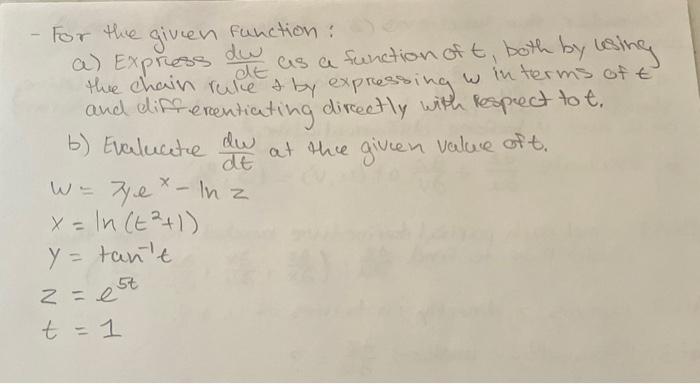 - For the given function:
a) Express dw/dt as a function of t, both by using
the chain rule & by expressing w in terms of t
and differentiating directly with respect to t.
b) Evaluate dw/dt at the given value of t.
w = 7ye^x - ln z
x = ln (t²+1)
y = tan⁻¹t
z = e^5t
t = 1